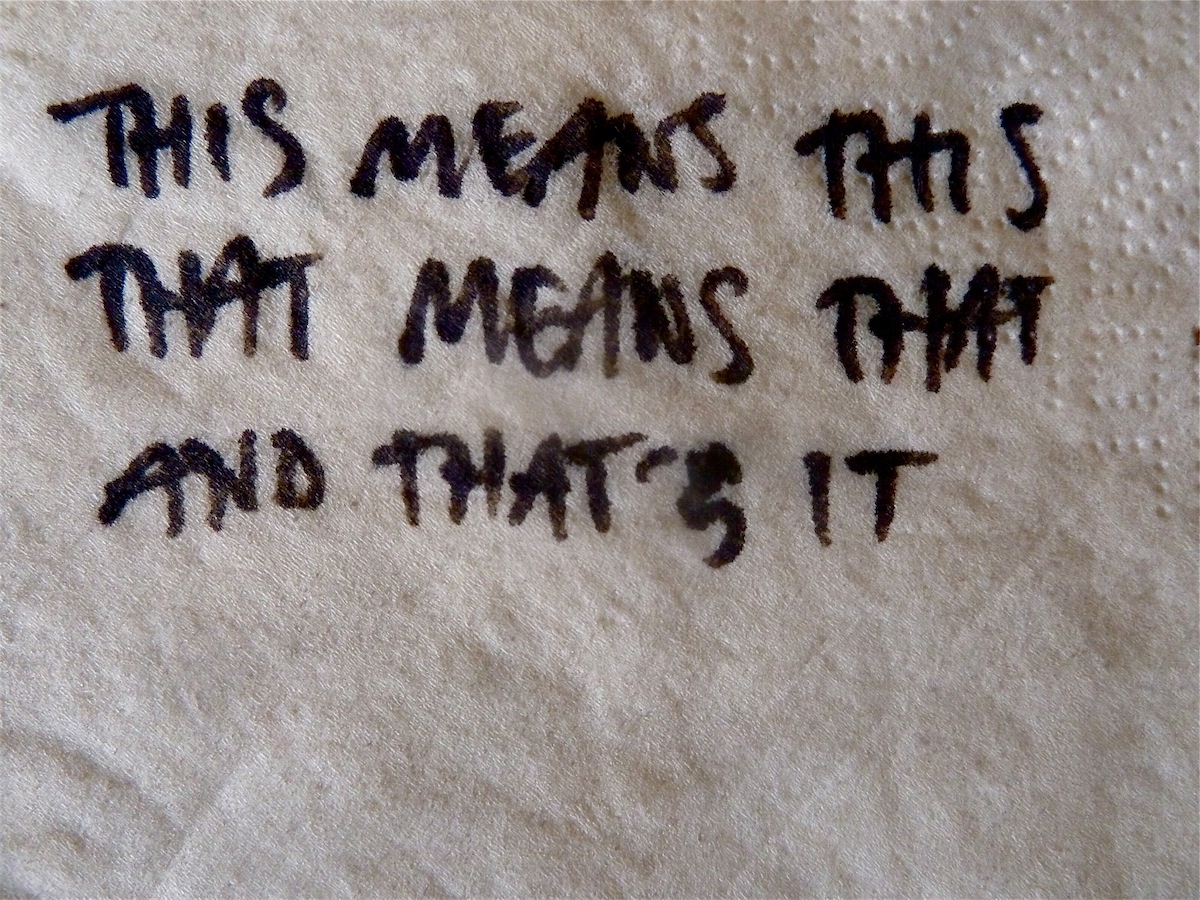 THIS MEANS THIS
THAT MEANS THAT
AND THAT'S IT